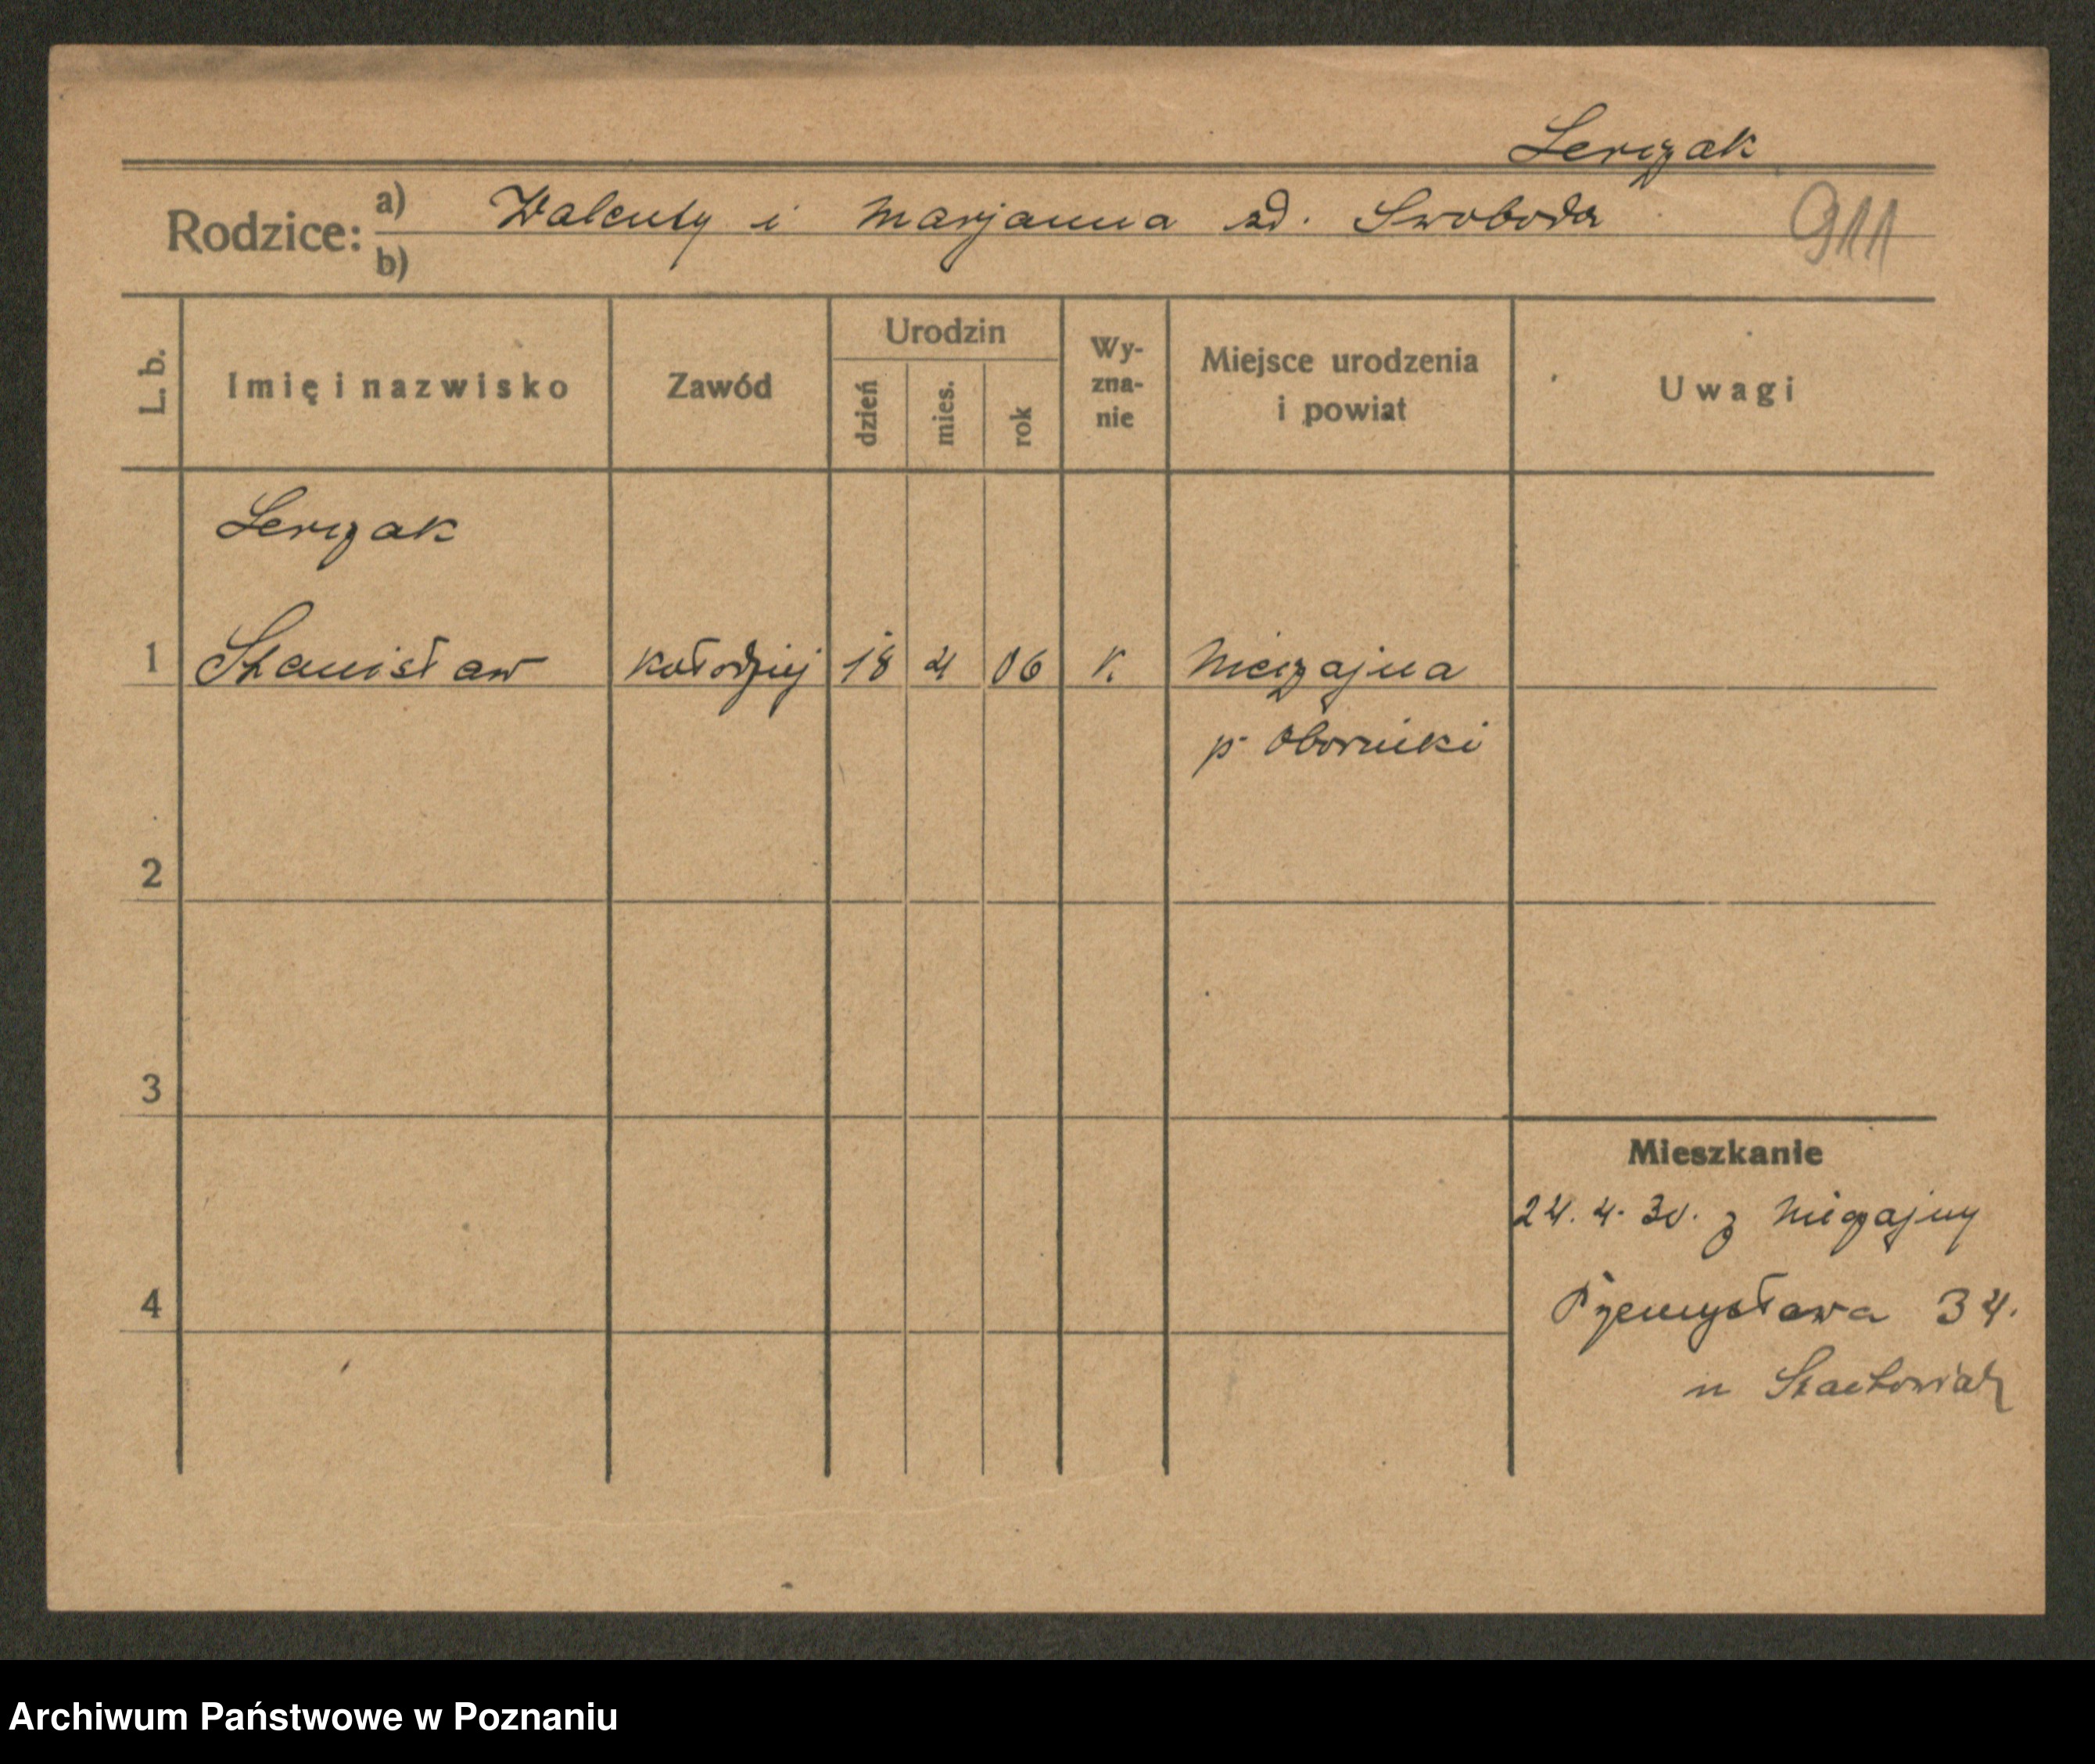 Lerczak
Rodzice: a) Walenty i Marjanna zd. Swoboda
b)
911
L. b.
Imię i nazwisko
Zawód
Urodzin
dzień
mies.
rok
Wy-
zna-
nie
Miejsce urodzenia
i powiat
Uwagi
Lerczak
1 Stanisław kołodziej 18 4 06 k. Nieczajna
p. Oborniki
2
3
Mieszkanie
24. 4. 30. z Nieczajny
4
Przemysława 34.
u Stachowiak
Archiwum Państwowe w Poznaniu